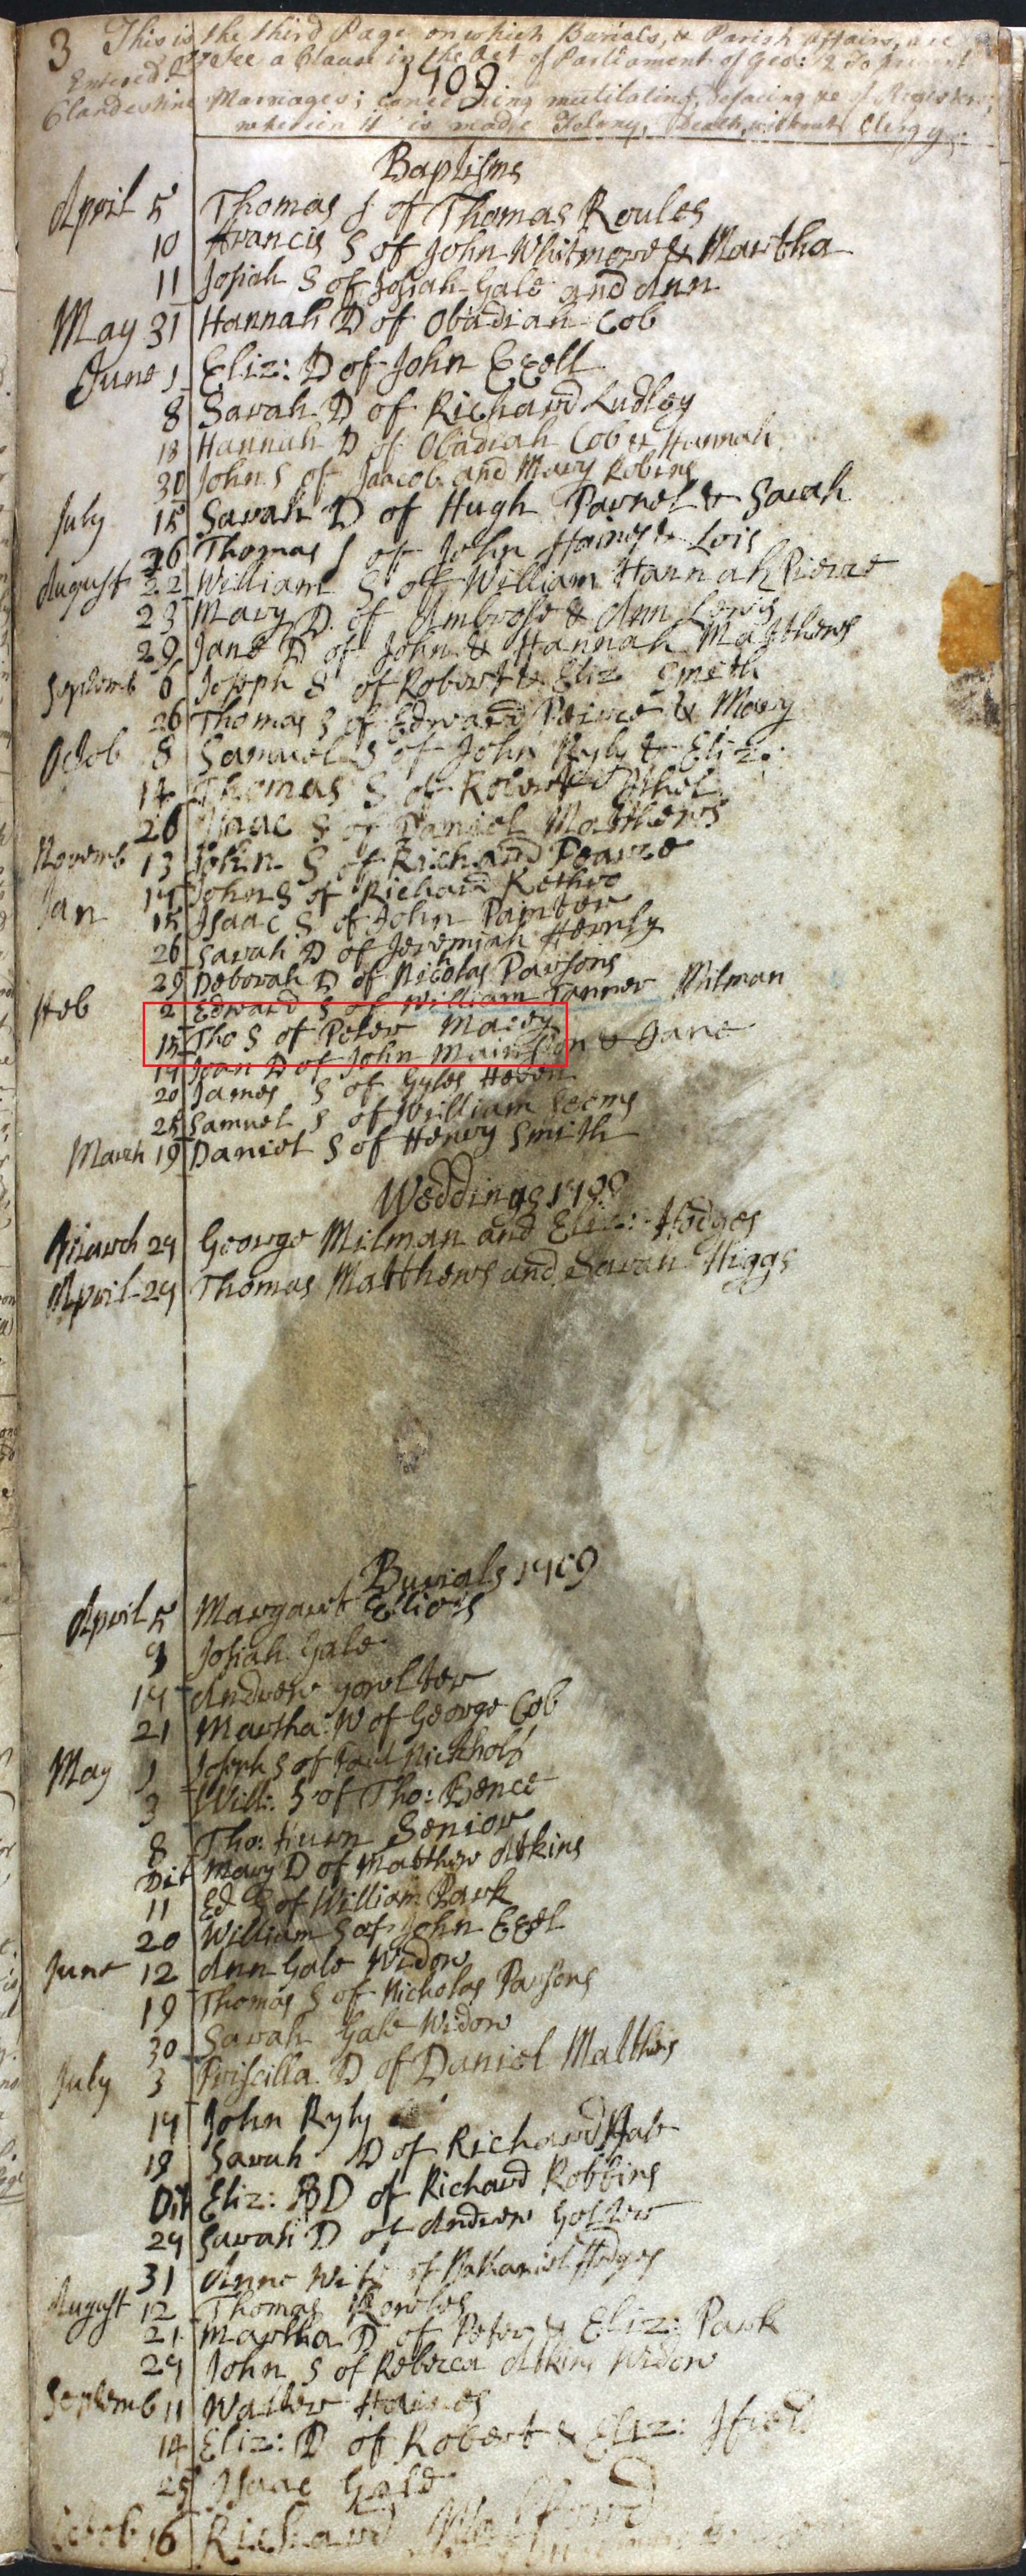 3 This is the third Page on which Burials, & Parish affairs, are
Entered. See a Clause in the Act of Parliament of Geo: 2 to prevent
1709
Clandestine Marriages; concerning mutilating, defacing ye of Registers;
wherein it is made Felony, Death, without Clergy.
Baptisms
April 5 Thomas S of Thomas Roules
10 Francis S of John Whitmore & Martha
11 Josiah S of Josiah Gale and Ann
May 31 Hannah D of Obadiah Cob
June 1 Eliz: D of John Ezell
8 Sarah D of Richard Ludley
18 Hannah D of Obadiah Cob & Hannah
30 John S of Jaacob and Mary Robins
July 15 Sarah D of Hugh Parnel & Sarah
26 Thomas S of John Haines & Lois
August 22 William S of William Hannah Pierce
23 Mary D of Ambrose & Ann Lewis
29 Jane D of John & Hannah Matthews
Septemb 6 Joseph S of Robert & Eliz Smith
26 Thomas S of Edward Peirce & Mary
Octob 8 Samuel S of John Ryly & Eliz:
14 Thomas S of Robert
26 Isaac S of Daniel Matthews
Novemb 13 John S of Richard Pearce
Jan 14 John S of Richard
15 Isaac S of John Painter
26 Sarah D of Jeremiah
29 Deborah D of Nicholas Parsons
Feb 2 Edward S of William Tanner Milman
15 Tho S of Peter Macey
19 Joan D of John & Jane
20 James S of Gyles
25 Samuel S of William
March 19 Daniel S of Henry Smith
Weddings 1709
March 29 George Milman and Eliz: Hodges
April 29 Thomas Matthews and Sarah Higgs
Burials 1709
April 5 Margaret
9 Josiah Gale
14 Andrew
21 Martha: W of George Cob
May 1 Joseph S of
3 Will: S of Tho: Bence
8 Tho: Senior
Dit Mary D of Matthew Atkins
11 Ed S of William Park
20 William S of John Ezel
June 12 Ann Gale Widow
19 Thomas S of Nicholas Parsons
30 Sarah Gale Widow
July 3 Priscilla D of Daniel Matthews
14 John Ryly
19 Sarah D of Richard
Dit Eliz: D of Richard Robbins
24 Sarah D of Andrew
31 Anne Wife of Nathaniel Hodges
August 12 Thomas Rowles
21 Martha D of Peter & Eliz: Park
24 John S of Rebecca Atkins Widow
Septemb 11 Walter Haines
14 Eliz: D of Robert & Eliz:
25 Isaac Gale
Octob 16 Richard